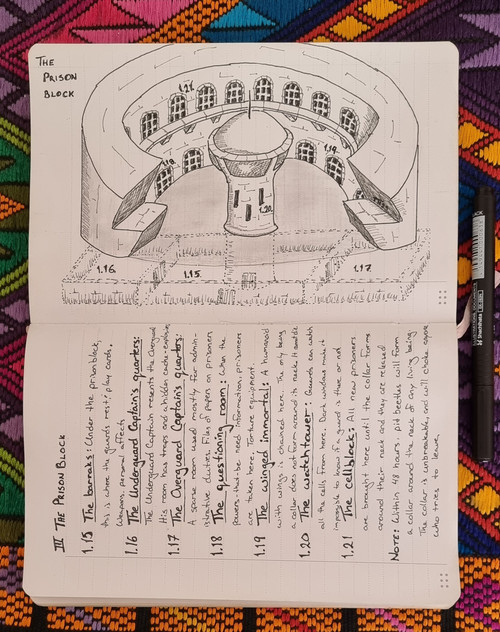 THE
PRISON
BLOCK
1.21
1.19
1.19
1.20
1.16.
1.15.
1.17.
III THE PRISON BLOCK
1.15 The barraks: Under the prisonblock,
this is where the guards rest/play cards,
Weapons, personal affect
1.16 The Underguard Captain's quarters:
The Underguard Captain resents the Overguard
His room has traps and a hidden cache - explosive
1.17 The Overguard Captain's quarters:
A sparse room used mostly for admin-
istrative duties. Files of papers on prisoners
1.18 The questioning room: When the
powers-that-be need information, prisoners
are taken here. Torture equipment.
1.19 The winged immortal: A humanoid
with wings is chained here. The my being
a collar does not form around its neck. It
1.20 The watchtower: Guards can watch
all the cells from here. Dark windows make it
impossible to know if a guard is there or not
1.21 The cellblock: All new prisoners
are brought here until the collar forms
around their neck and they are released
NOTE: Within 48 hours, pit beetles will form
a collar around the neck of any living being.
The collar is unbreakable, and will choke anyone
who tries to leave.